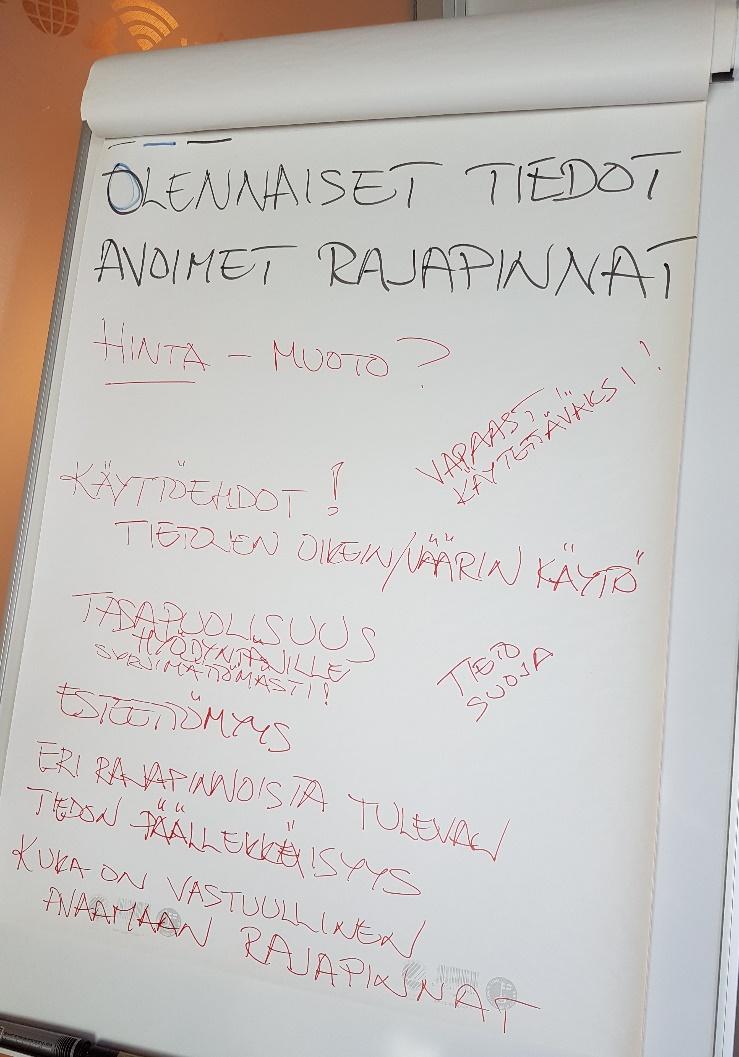 OLENNAISET TIEDOT
AVOIMET RAJAPINNAT
HINTA – MUOTO?
VAPAASTI
KÄYTETTÄVÄKSI!
KÄYTTÖEHDOT!
TIETOJEN OIKEIN/VÄÄRIN KÄYTTÖ
TASAPUOLISUUS
HYÖDYNTÄJILLE
SYRJIMÄTTÖMÄSTI!
TIETO
SUOJA
ESTEETTÖMYYS
ERI RAJAPINNOISTA TULEVAN
TIEDON PÄÄLLEKKÄISYYS
KUKA ON VASTUULLINEN
AVAAMAAN RAJAPINNAT